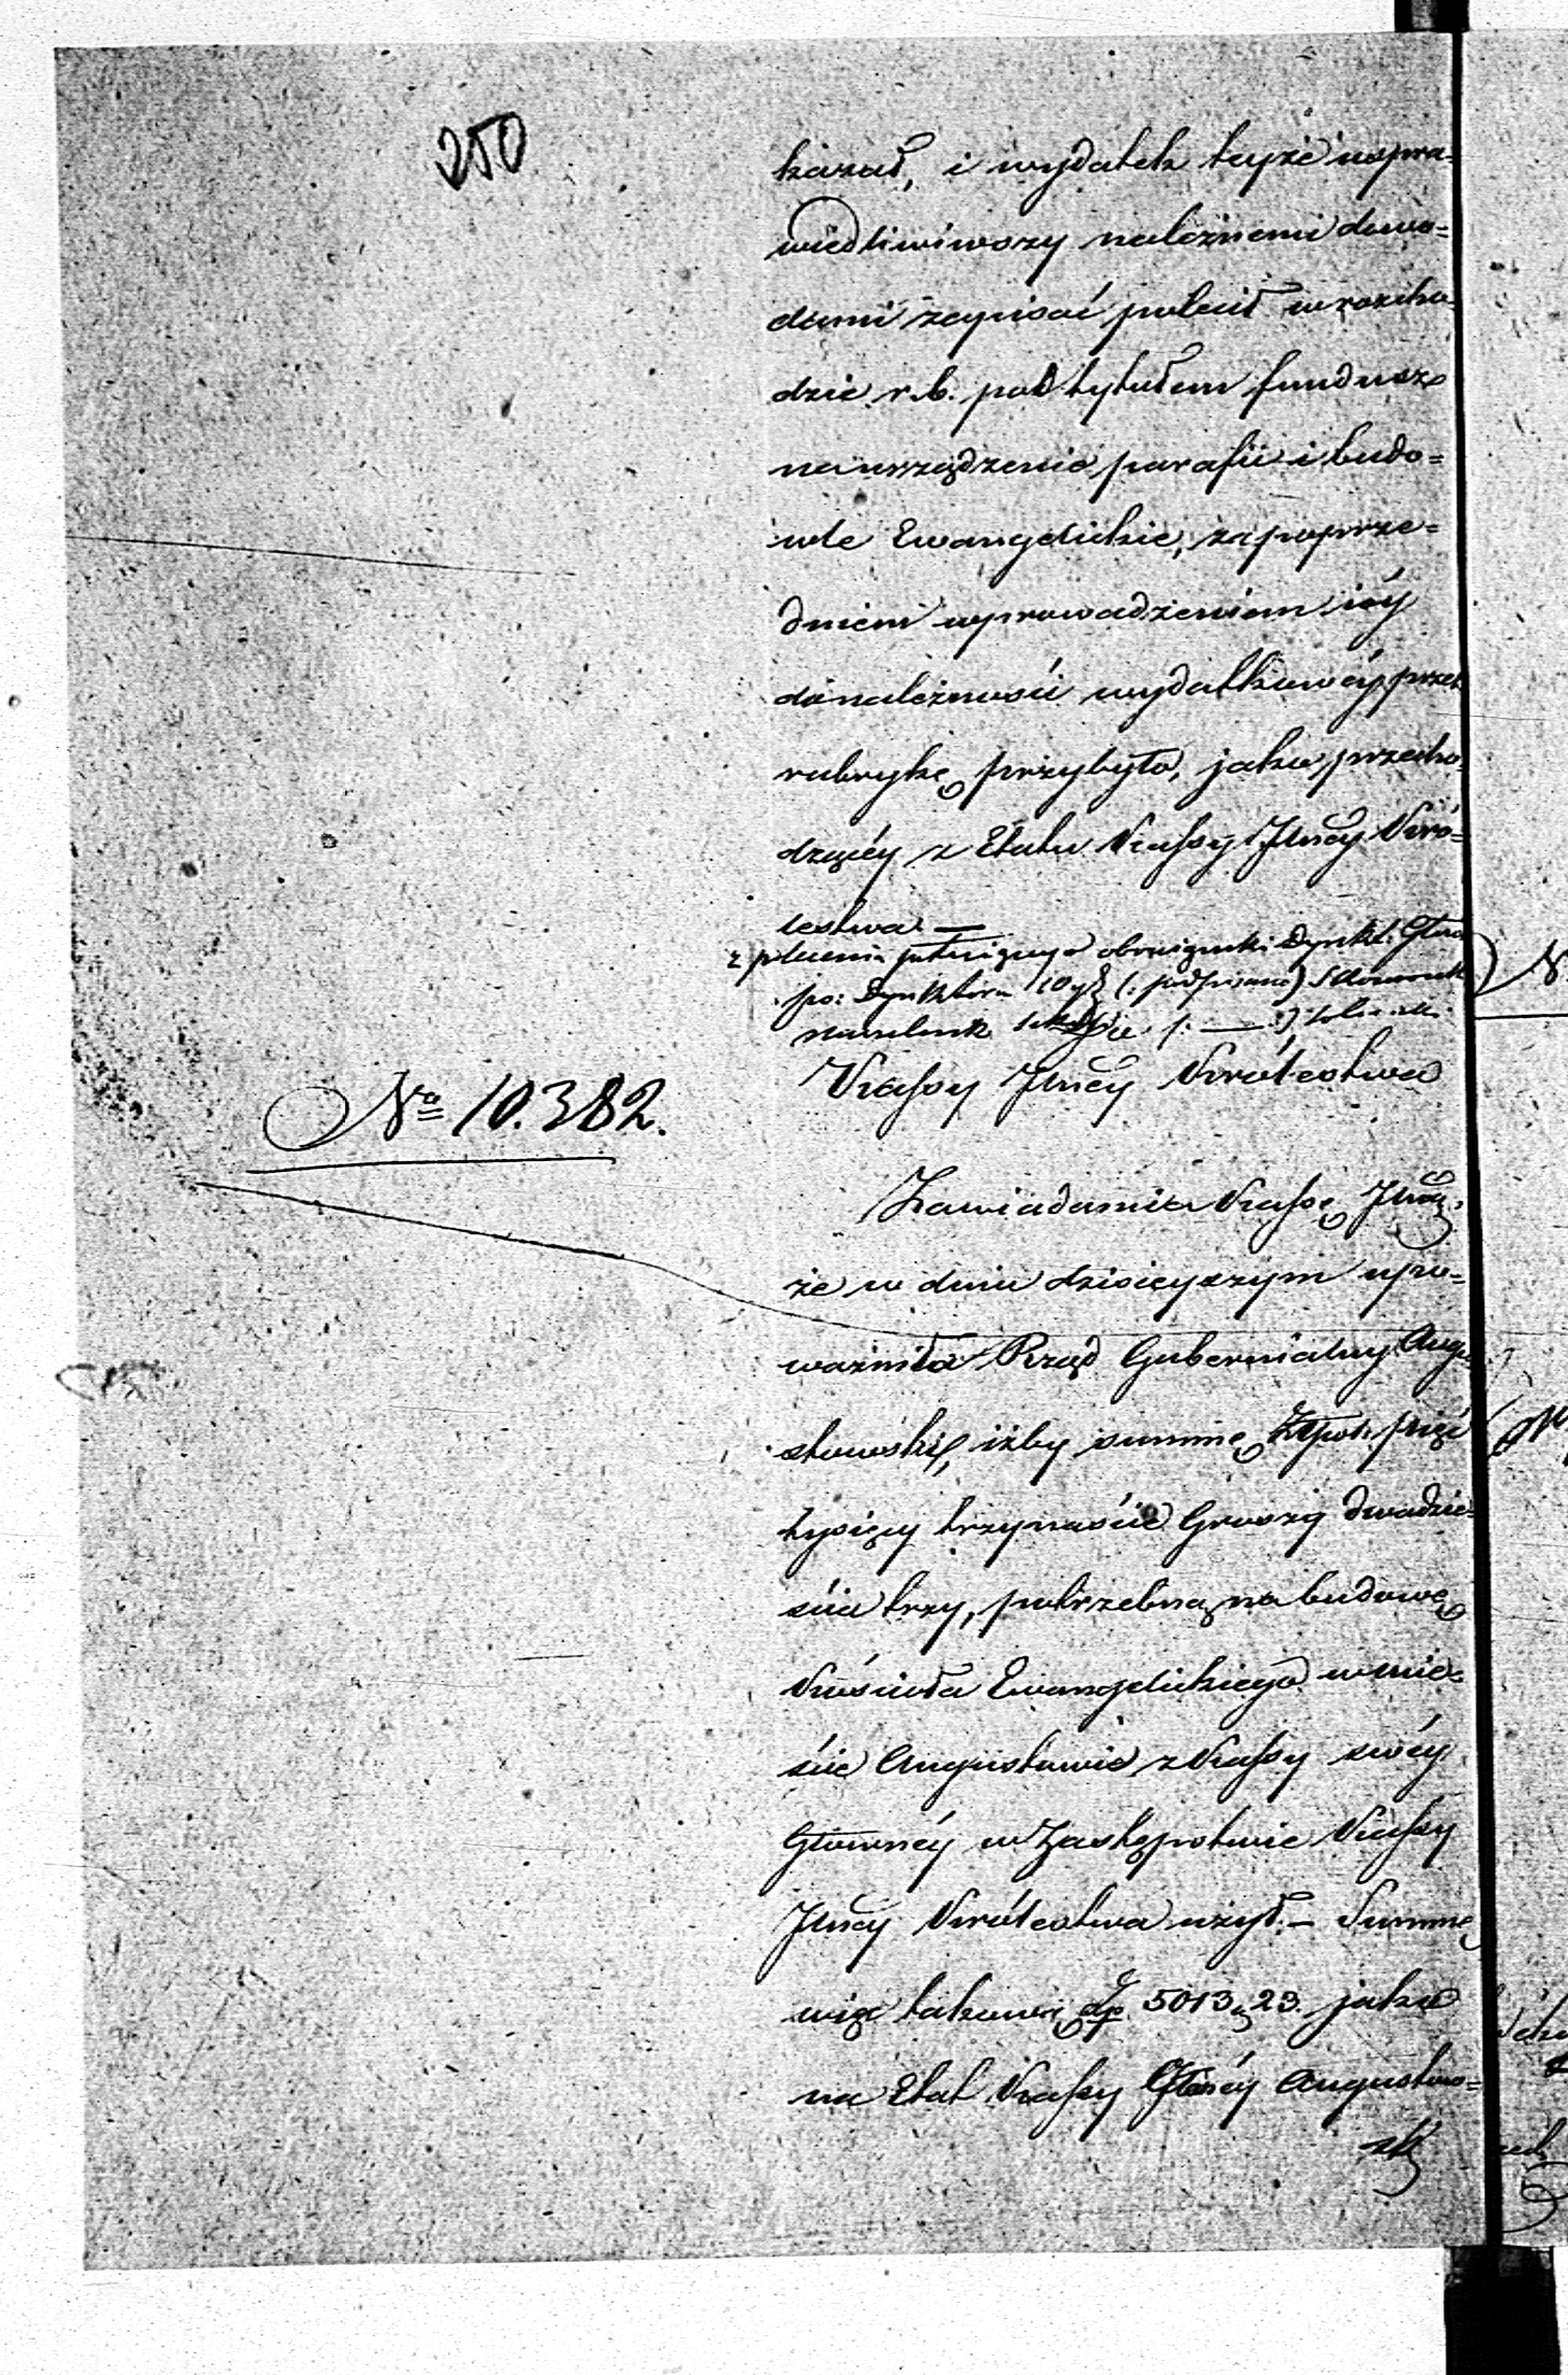 250
kazał, i wydatek tejże uspra-
wiedliwiwszy należnemi dowo=
dami zapisać polecił w rozcho-
dzie r.b. pod tytułem fundusz
na urządzenie parafii i budo=
wle Ewangelickie, za poprze=
dniem wprowadzeniem iéy
do należności wydatkowéy przez
rubrykę przybyło, jako przecho-
dzącéy z Etatu Kassy Jłnéy Kró=
lestwa —
z polecenia obowiązki Dyrekt. Głów
po: Dyrektora (: podpisano)
naczelnik Sekcyi (: — :)
Kassy Jłnéy Królestwa
No 10.382.
Zawiadamia Kassę Jłną,
że w dniu dzisieyszym upo=
ważniła Rząd Gubernialny Augu
stowski, iżby summę Złpol: pięć
tysięcy trzynaście Groszy dwadzie=
ścia trzy, potrzebną na budowę
Kościoła Ewangelickiego w mie=
ście Augustowie z Kassy swéy
Głównéy w Zastępstwie Kassy
Jłnéy Królestwa użył. — Summę
więc takową złp 5013, 23. jako
na Etat Kassy Głównéy Augustow=
sk